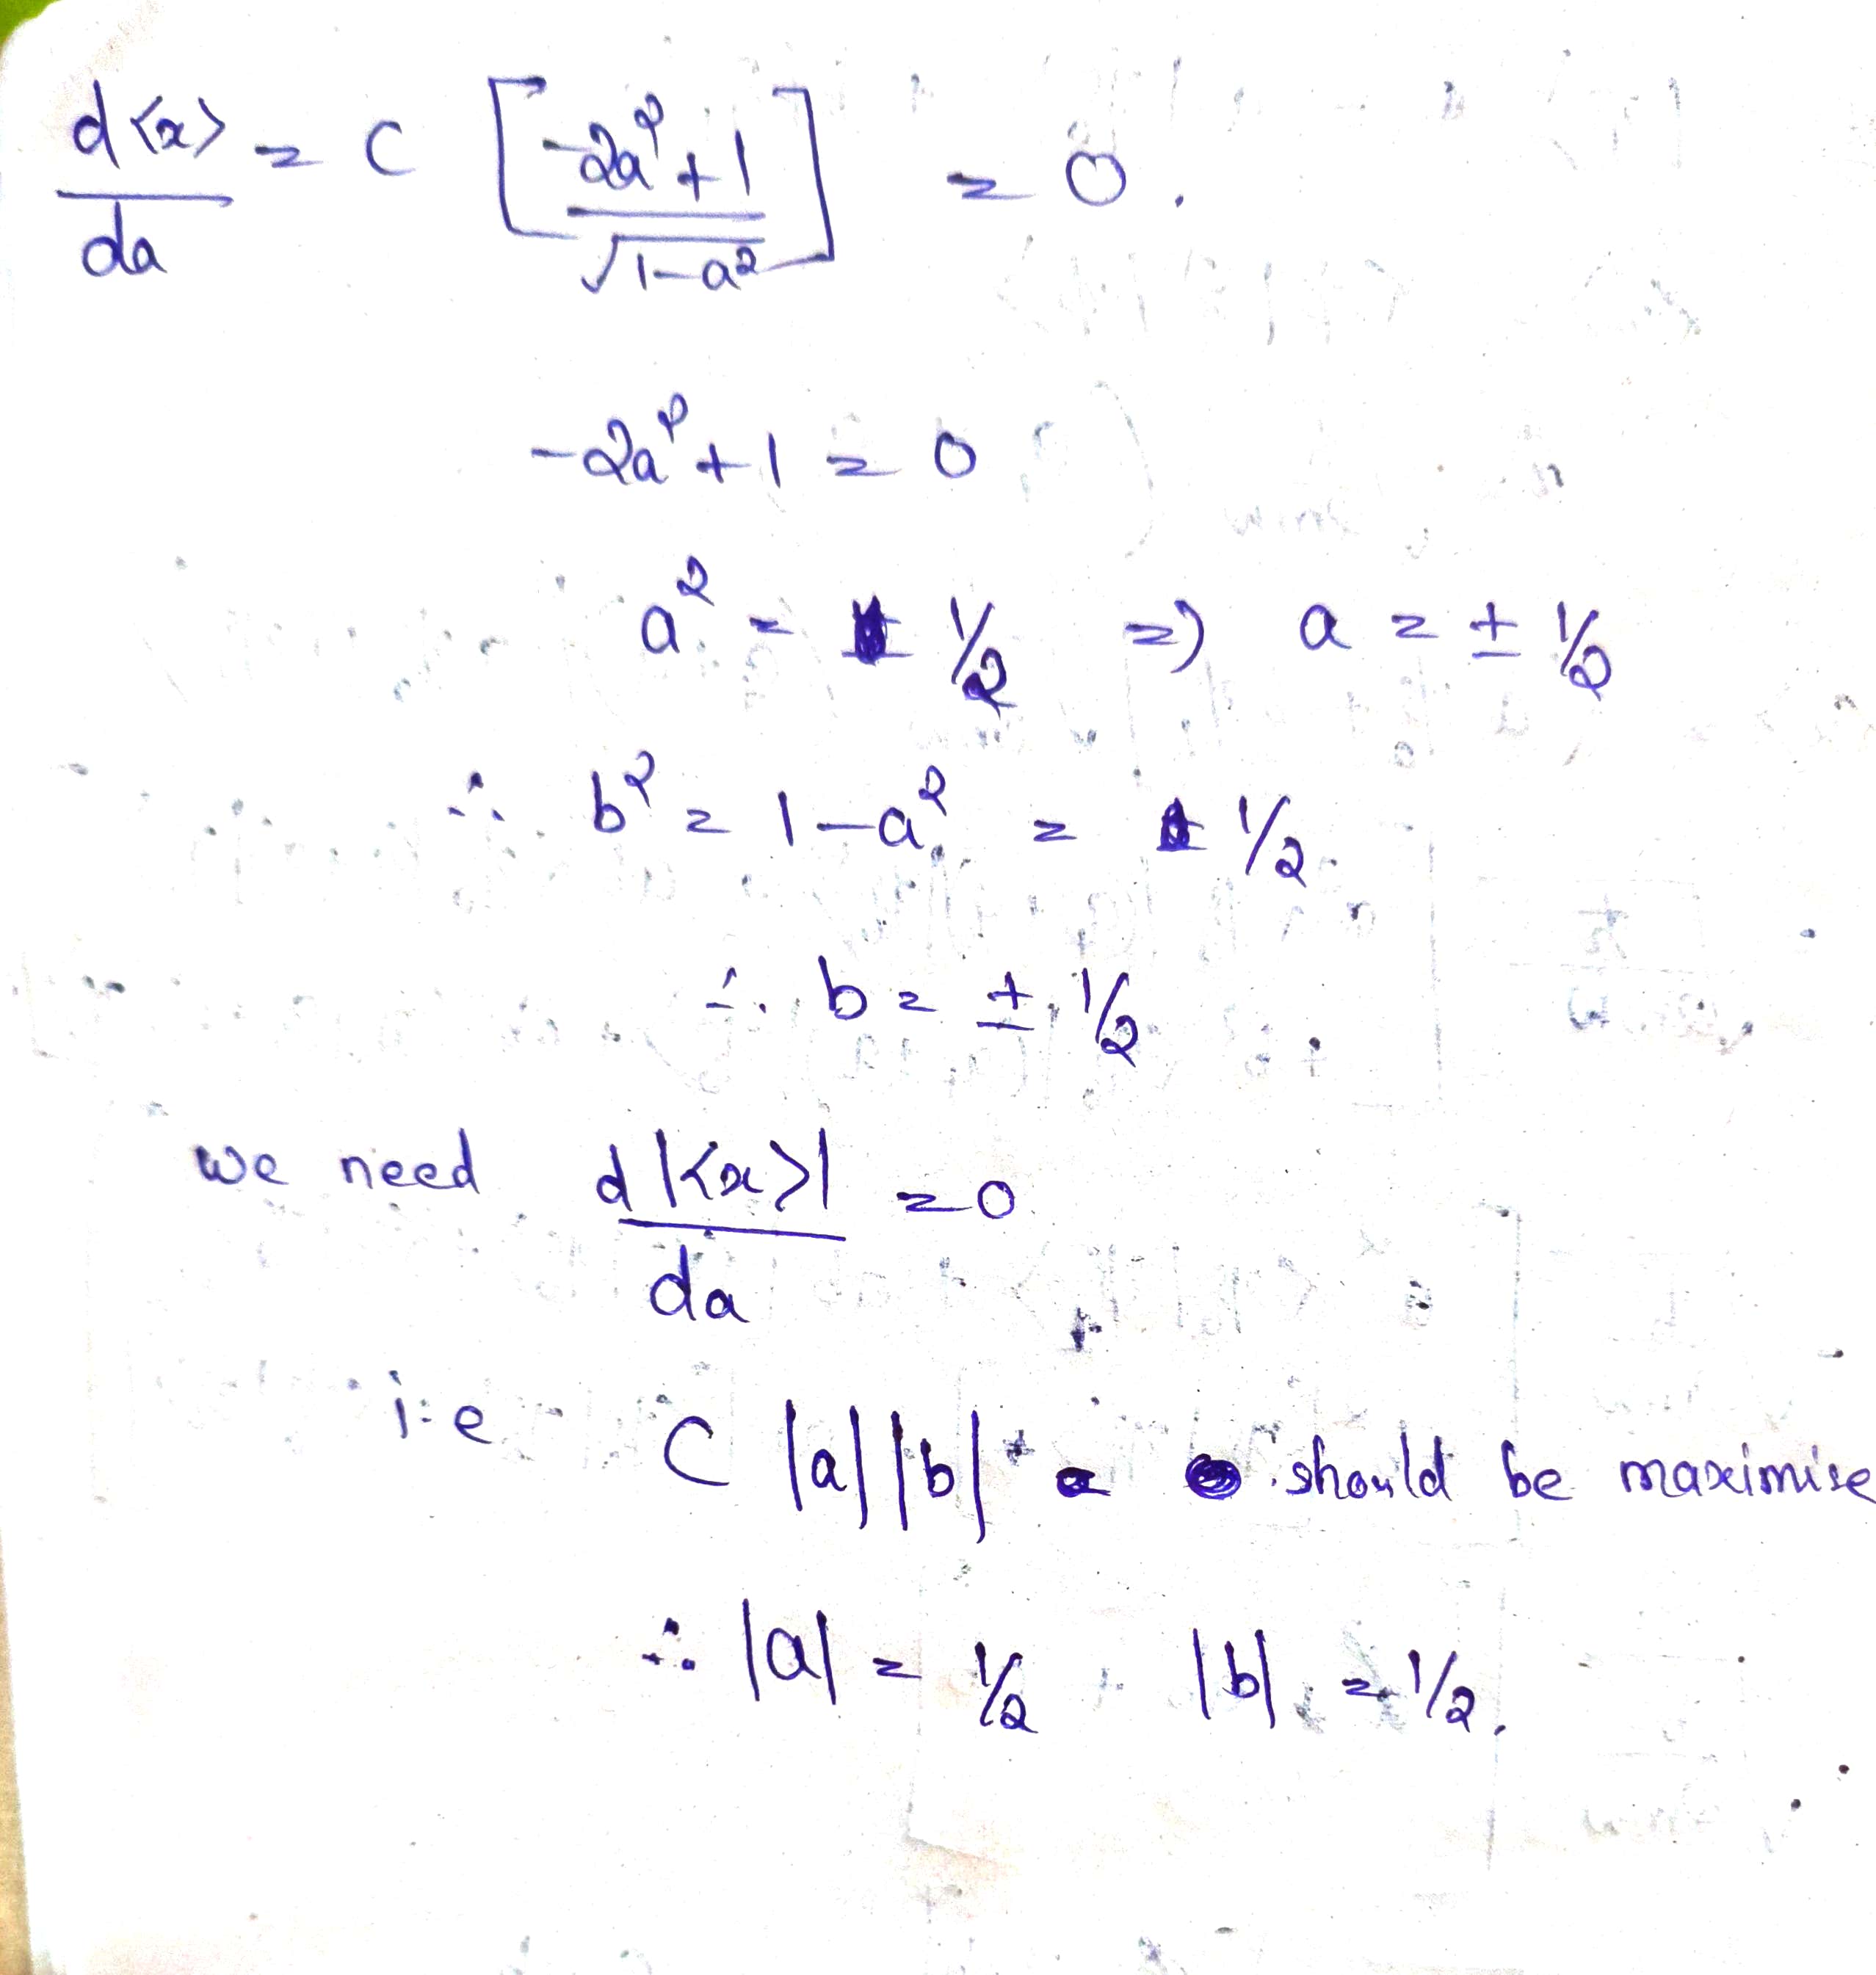 d<x>/da = C [(-2a²+1)/√(1-a²)] = 0.
-2a²+1 = 0
a² = 1/2 => a = ± 1/2
∴ b² = 1-a² = 1/2
∴ b = ± 1/2
we need d|<x>|/da = 0
i.e C |a||b| should be maximise
∴ |a| = 1/2 |b| = 1/2.